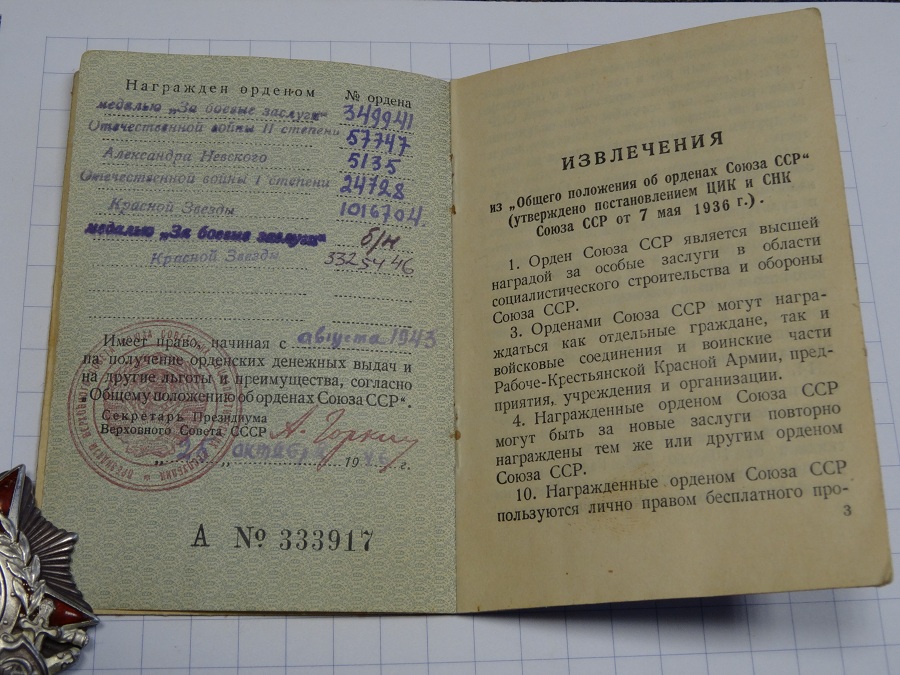 Награжден орденом № ордена
медалью „За боевые заслуги“ 349941
Отечественной войны II степени 57747
Александра Невского 5135
Отечественной войны I степени 24728
Красной Звезды 1016704.
медалью „За боевые заслуги“ б/н
Красной Звезды 3325446
Имеет право, начиная с августа 1943
на получение орденских денежных выдач и
на другие льготы и преимущества, согласно
„Общему положению об орденах Союза ССР“.
Секретарь Президиума
Верховного Совета СССР А. Горкин
„25“ октября 19 г.
А № 333917
ИЗВЛЕЧЕНИЯ
из „Общего положения об орденах Союза ССР“
(утверждено постановлением ЦИК и СНК
Союза ССР от 7 мая 1936 г.).
1. Орден Союза ССР является высшей
наградой за особые заслуги в области
социалистического строительства и обороны
Союза ССР.
3. Орденами Союза ССР могут награ-
ждаться как отдельные граждане, так и
войсковые соединения и воинские части
Рабоче-Крестьянской Красной Армии, пред-
приятия, учреждения и организации.
4. Награжденные орденом Союза ССР
могут быть за новые заслуги повторно
награждены тем же или другим орденом
Союза ССР.
10. Награжденные орденом Союза ССР
пользуются лично правом бесплатного про-
3